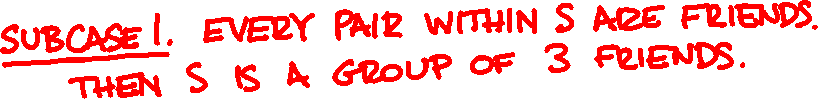 SUBCASE 1. EVERY PAIR WITHIN S ARE FRIENDS.
THEN S IS A GROUP OF 3 FRIENDS.